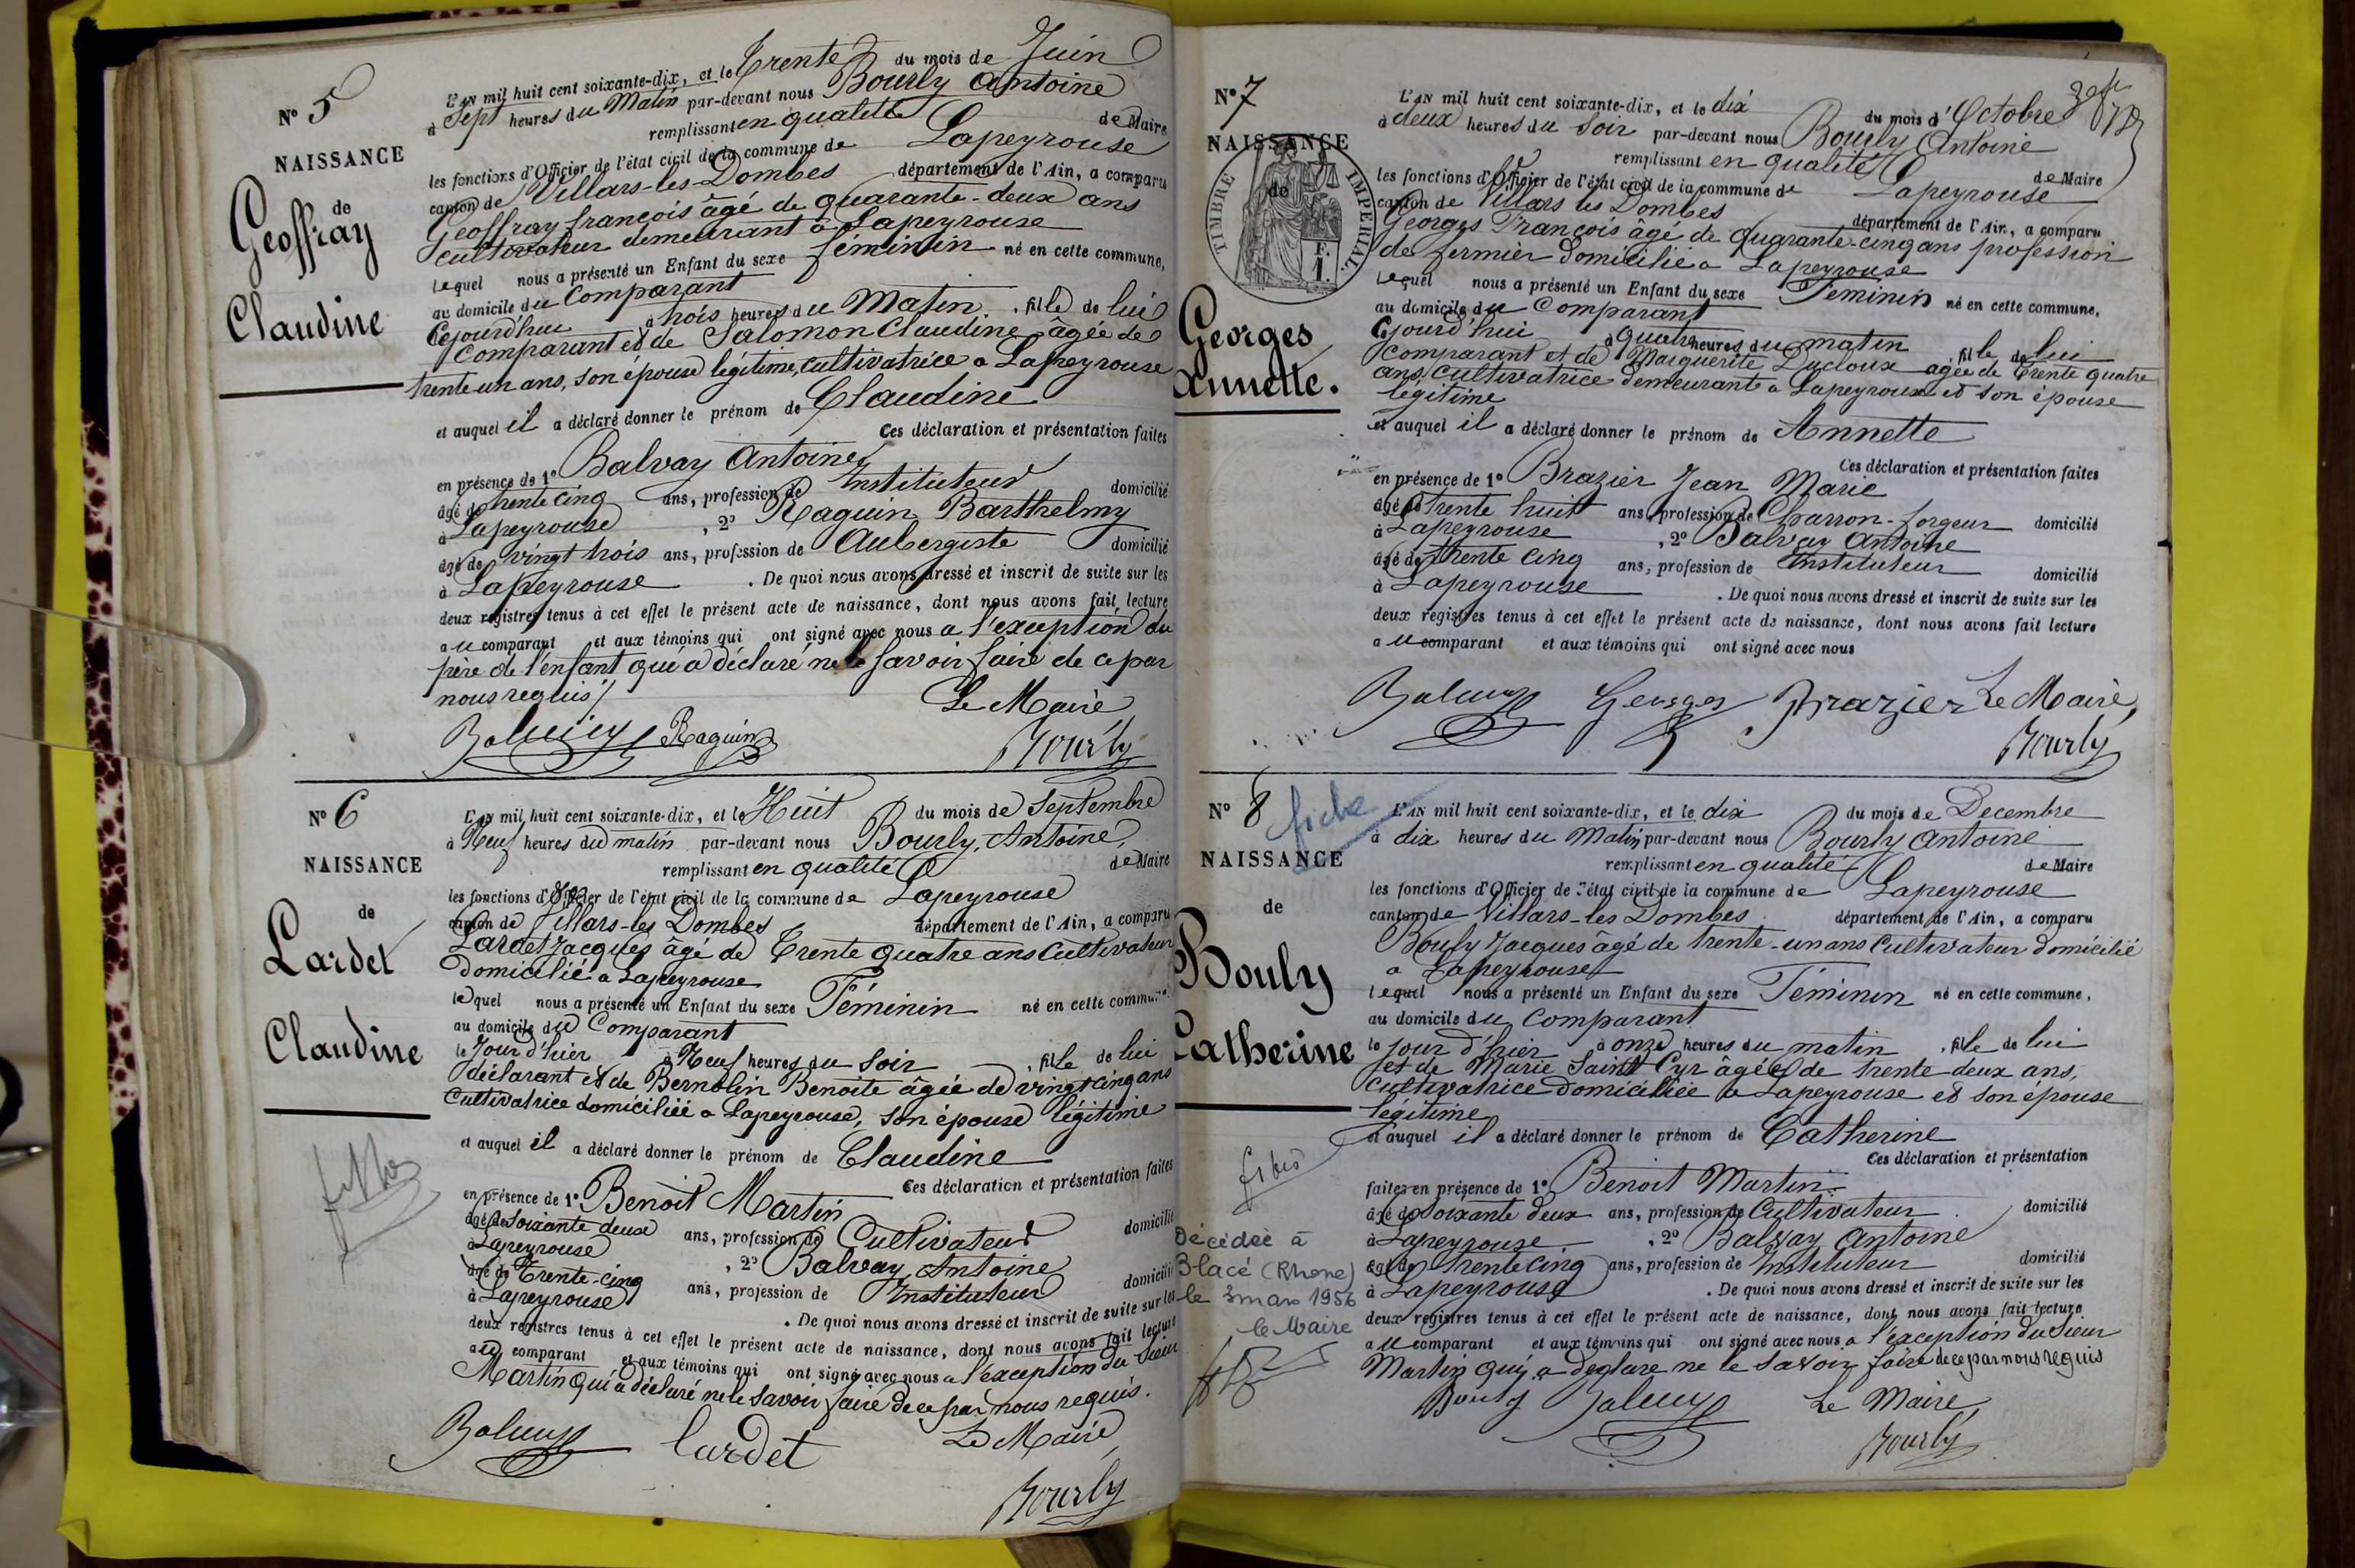 N° 5
NAISSANCE
de
Geoffray
Claudine
L'AN mil huit cent soixante-dix, et le Trente du mois de Juin
à Sept heures du Matin par-devant nous Bourly Antoine
remplissant en qualité de Maire
les fonctions d'Officier de l'état civil de la commune de Lapeyrouse
canton de Villars-les-Dombes département de l'Ain, a comparu
Geoffray françois âgé de quarante-deux ans
cultivateur demeurant à Lapeyrouse
lequel nous a présenté un Enfant du sexe féminin né en cette commune,
au domicile du Comparant
Cejourd'hui à trois heures du Matin, fille de lui
Comparant et de Salomon Claudine âgée de
trente un ans, son épouse légitime, cultivatrice a Lapeyrouse
et auquel il a déclaré donner le prénom de Claudine
Ces déclaration et présentation faites
en présence de 1° Balvay Antoine
âgé de trente cinq ans, profession de Instituteur domicilié
à Lapeyrouse, 2° Raguin Barthelmy
âgé de vingt trois ans, profession de Aubergiste domicilié
à Lapeyrouse. De quoi nous avons dressé et inscrit de suite sur les
deux registres tenus à cet effet le présent acte de naissance, dont nous avons fait lecture
au comparant et aux témoins qui ont signé avec nous a l'exception du
père de l'enfant qui a déclaré ne le savoir faire de ce par
nous requis
Le Maire
Balvay Raguin Bourly
N° 6
NAISSANCE
de
Lardet
Claudine
L'AN mil huit cent soixante-dix, et le Huit du mois de Septembre
à Neuf heures du matin par-devant nous Bourly, Antoine,
remplissant en qualité de Maire
les fonctions d'Officier de l'état civil de la commune de Lapeyrouse
canton de Villars-les Dombes département de l'Ain, a comparu
Lardet Jacques âgé de Trente quatre ans Cultivateur
domicilié a Lapeyrouse
lequel nous a présenté un Enfant du sexe Féminin né en cette commune
au domicile du Comparant
le Jour d'hier à Neuf heures du Soir, fille de lui
déclarant et de Bernolin Benoite âgée de vingt cinq ans
Cultivatrice domiciliée a Lapeyrouse, son épouse légitime
et auquel il a déclaré donner le prénom de Claudine
Ces déclaration et présentation faites
en présence de 1° Benoit Martin
âgé de soixante deux ans, profession de Cultivateur domicilié
à Lapeyrouse, 2° Balvay, Antoine
âgé de Trente-cinq ans, profession de Instituteur domicilié
à Lapeyrouse. De quoi nous avons dressé et inscrit de suite sur les
deux registres tenus à cet effet le présent acte de naissance, dont nous avons fait lecture
au comparant et aux témoins qui ont signé avec nous a l'exception du Sieur
Martin qui a déclaré ne le savoir faire de ce par nous requis.
Balvay Lardet Le Maire
Bourly
N° 7
NAISSANCE
de
TIMBRE IMPERIAL
Georges
Annette.
L'AN mil huit cent soixante-dix, et le dix du mois d'Octobre
à deux heures du Soir par-devant nous Bourly Antoine
remplissant en qualité de Maire
les fonctions d'Officier de l'état civil de la commune de Lapeyrouse
canton de Villars les Dombes département de l'Ain, a comparu
Georges François âgé de quarante-cinq ans profession
de fermier Domicilié a Lapeyrouse
Lequel nous a présenté un Enfant du sexe Féminin né en cette commune,
au domicile du Comparant
Cejourd'hui à quatre heures du matin, fille de lui
Comparant et de Marguerite Ducloux agée de trente quatre
ans, Cultivatrice demeurante a Lapeyrouse et son épouse
légitime
et auquel il a déclaré donner le prénom de Annette
Ces déclaration et présentation faites
en présence de 1° Brazier Jean Marie
âgé de trente huit ans, profession de Charron-forgeur domicilié
à Lapeyrouse, 2° Balvay Antoine
âgé de trente cinq ans, profession de Instituteur domicilié
à Lapeyrouse. De quoi nous avons dressé et inscrit de suite sur les
deux registres tenus à cet effet le présent acte de naissance, dont nous avons fait lecture
au comparant et aux témoins qui ont signé avec nous
Balvay Georges Brazier Le Maire,
Bourly
N° 8 fiche
NAISSANCE
de
Bouly
Catherine
L'AN mil huit cent soixante-dix, et le dix du mois de Decembre
à dix heures du Matin par-devant nous Bourly Antoine
remplissant en qualité de Maire
les fonctions d'Officier de l'état civil de la commune de Lapeyrouse
canton de Villars-les Dombes département de l'Ain, a comparu
Bouly Jacques âgé de trente-un ans Cultivateur domicilié
a Lapeyrouse
Lequel nous a présenté un Enfant du sexe Féminin né en cette commune,
au domicile du Comparant
le jour d'hier à onze heures du matin, fille de lui
et de Marie Saint Cyr âgée de trente-deux ans,
Cultivatrice Domiciliée a Lapeyrouse et son épouse
légitime
et auquel il a déclaré donner le prénom de Catherine
Ces déclaration et présentation
faites en présence de 1° Benoit Martin
âgé de soixante deux ans, profession de Cultivateur domicilié
à Lapeyrouse, 2° Balvay Antoine
âgé de trente cinq ans, profession de Instituteur domicilié
à Lapeyrouse. De quoi nous avons dressé et inscrit de suite sur les
deux registres tenus à cet effet le présent acte de naissance, dont nous avons fait lecture
au comparant et aux témoins qui ont signé avec nous a l'exception du Sieur
Martin qui a déglare ne le savoir faire de ce par nous requis
Bouly Balvay Le Maire,
Bourly
Décédée à
Blacé (Rhône)
le 3 mars 1956
le Maire